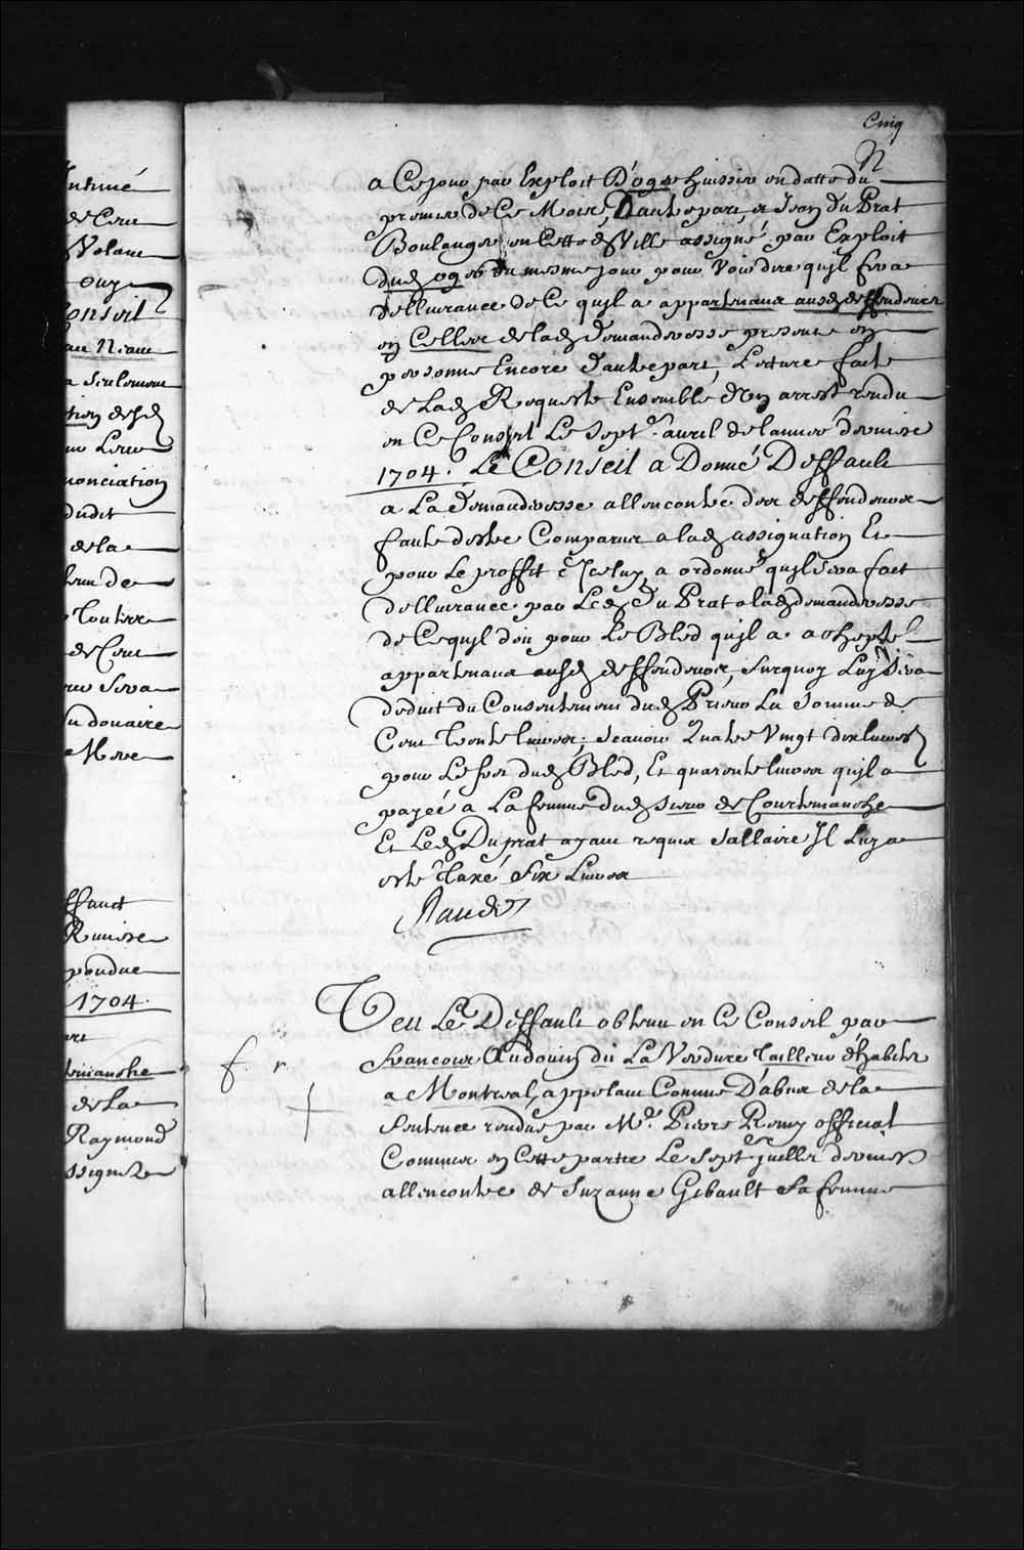 Cinq
intimé
de Cens
Volant
ouy
Conseil
au Niant
a Seulement
nonciation
dudit
de la
de Cent
sera
douaire
Mere
ffaut
Remise
pondue
1704.
temanche
de La
Raymond
assignée
a Ce jour par Exploit D'oger huissier en datte du
premier de Ce Mois, D'autre part, et Jean Du Prat
Boulanger en Cette d. Ville assigné par Exploit
dud. oger du mesme jour pour Voir dire quil fera
dellivrance de Ce quil a appartenant ausd. deffendeurs
en Celler de lad. demanderesse presente en
personne Encore d'autre part, Lecture faite
de Lad. Requeste Ensemble d'un arrest rendu
en Ce Conseil Le Septe. avril de l'année derniere
1704. Le Conseil a Donné Deffault
a La demanderesse allencontre des deffendeurs
faute destre Comparus a lad. assignation Et
pour Le proffit d'Iceluy, a ordonné quil sera fait
dellivrance par Led. Du Prat a lad. demanderesse
de Ce quil doit pour Le Bled quil a achepté
appartenant ausd. deffendeurs, Surquoy Luy Sera
deduit du Consentement dud. Prieur La Somme de
Cent trente livres, Scavoir Quatre Vingt dix livres
pour Le fer dud. Bled, Et quarente livres quil a
payée a La femme dud. Sieur de Courtemanche
Et Led. Duprat ayant requis Sallaire Il Luy a
esté Taxé Six Livres
Raudot
Veu Le Deffault obtenu en Ce Conseil par
francois Audouin dit La Verdure Tailleur d'habits
a Montreal, appelant Comme D'abus de la
Sentence rendue par Mre. Pierre Remy official
Commis en Cette partie Le Septe. juillet dernier
allencontre de Suzanne Gibault Sa femme